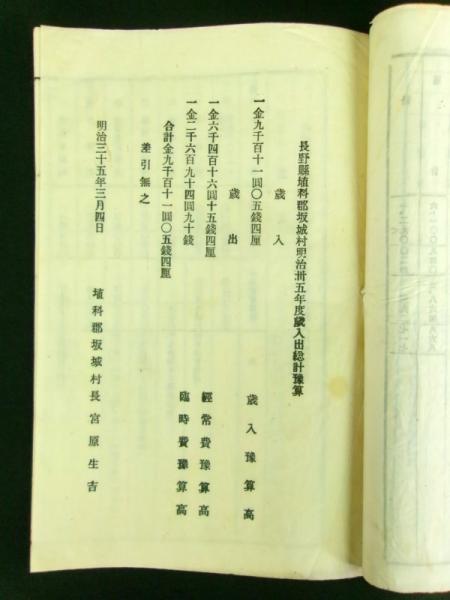 長野縣埴科郡坂城村明治卅五年度歲入出總計豫算
歲入
一金九千百十一圓〇五錢四厘 歲入豫算高
歲出
一金六千四百十六圓十五錢四厘 經常費豫算高
一金二千六百九十四圓九十錢 臨時費豫算高
合計金九千百十一圓〇五錢四厘
差引無之
明治三十五年三月四日
埴科郡坂城村長宮原生吉